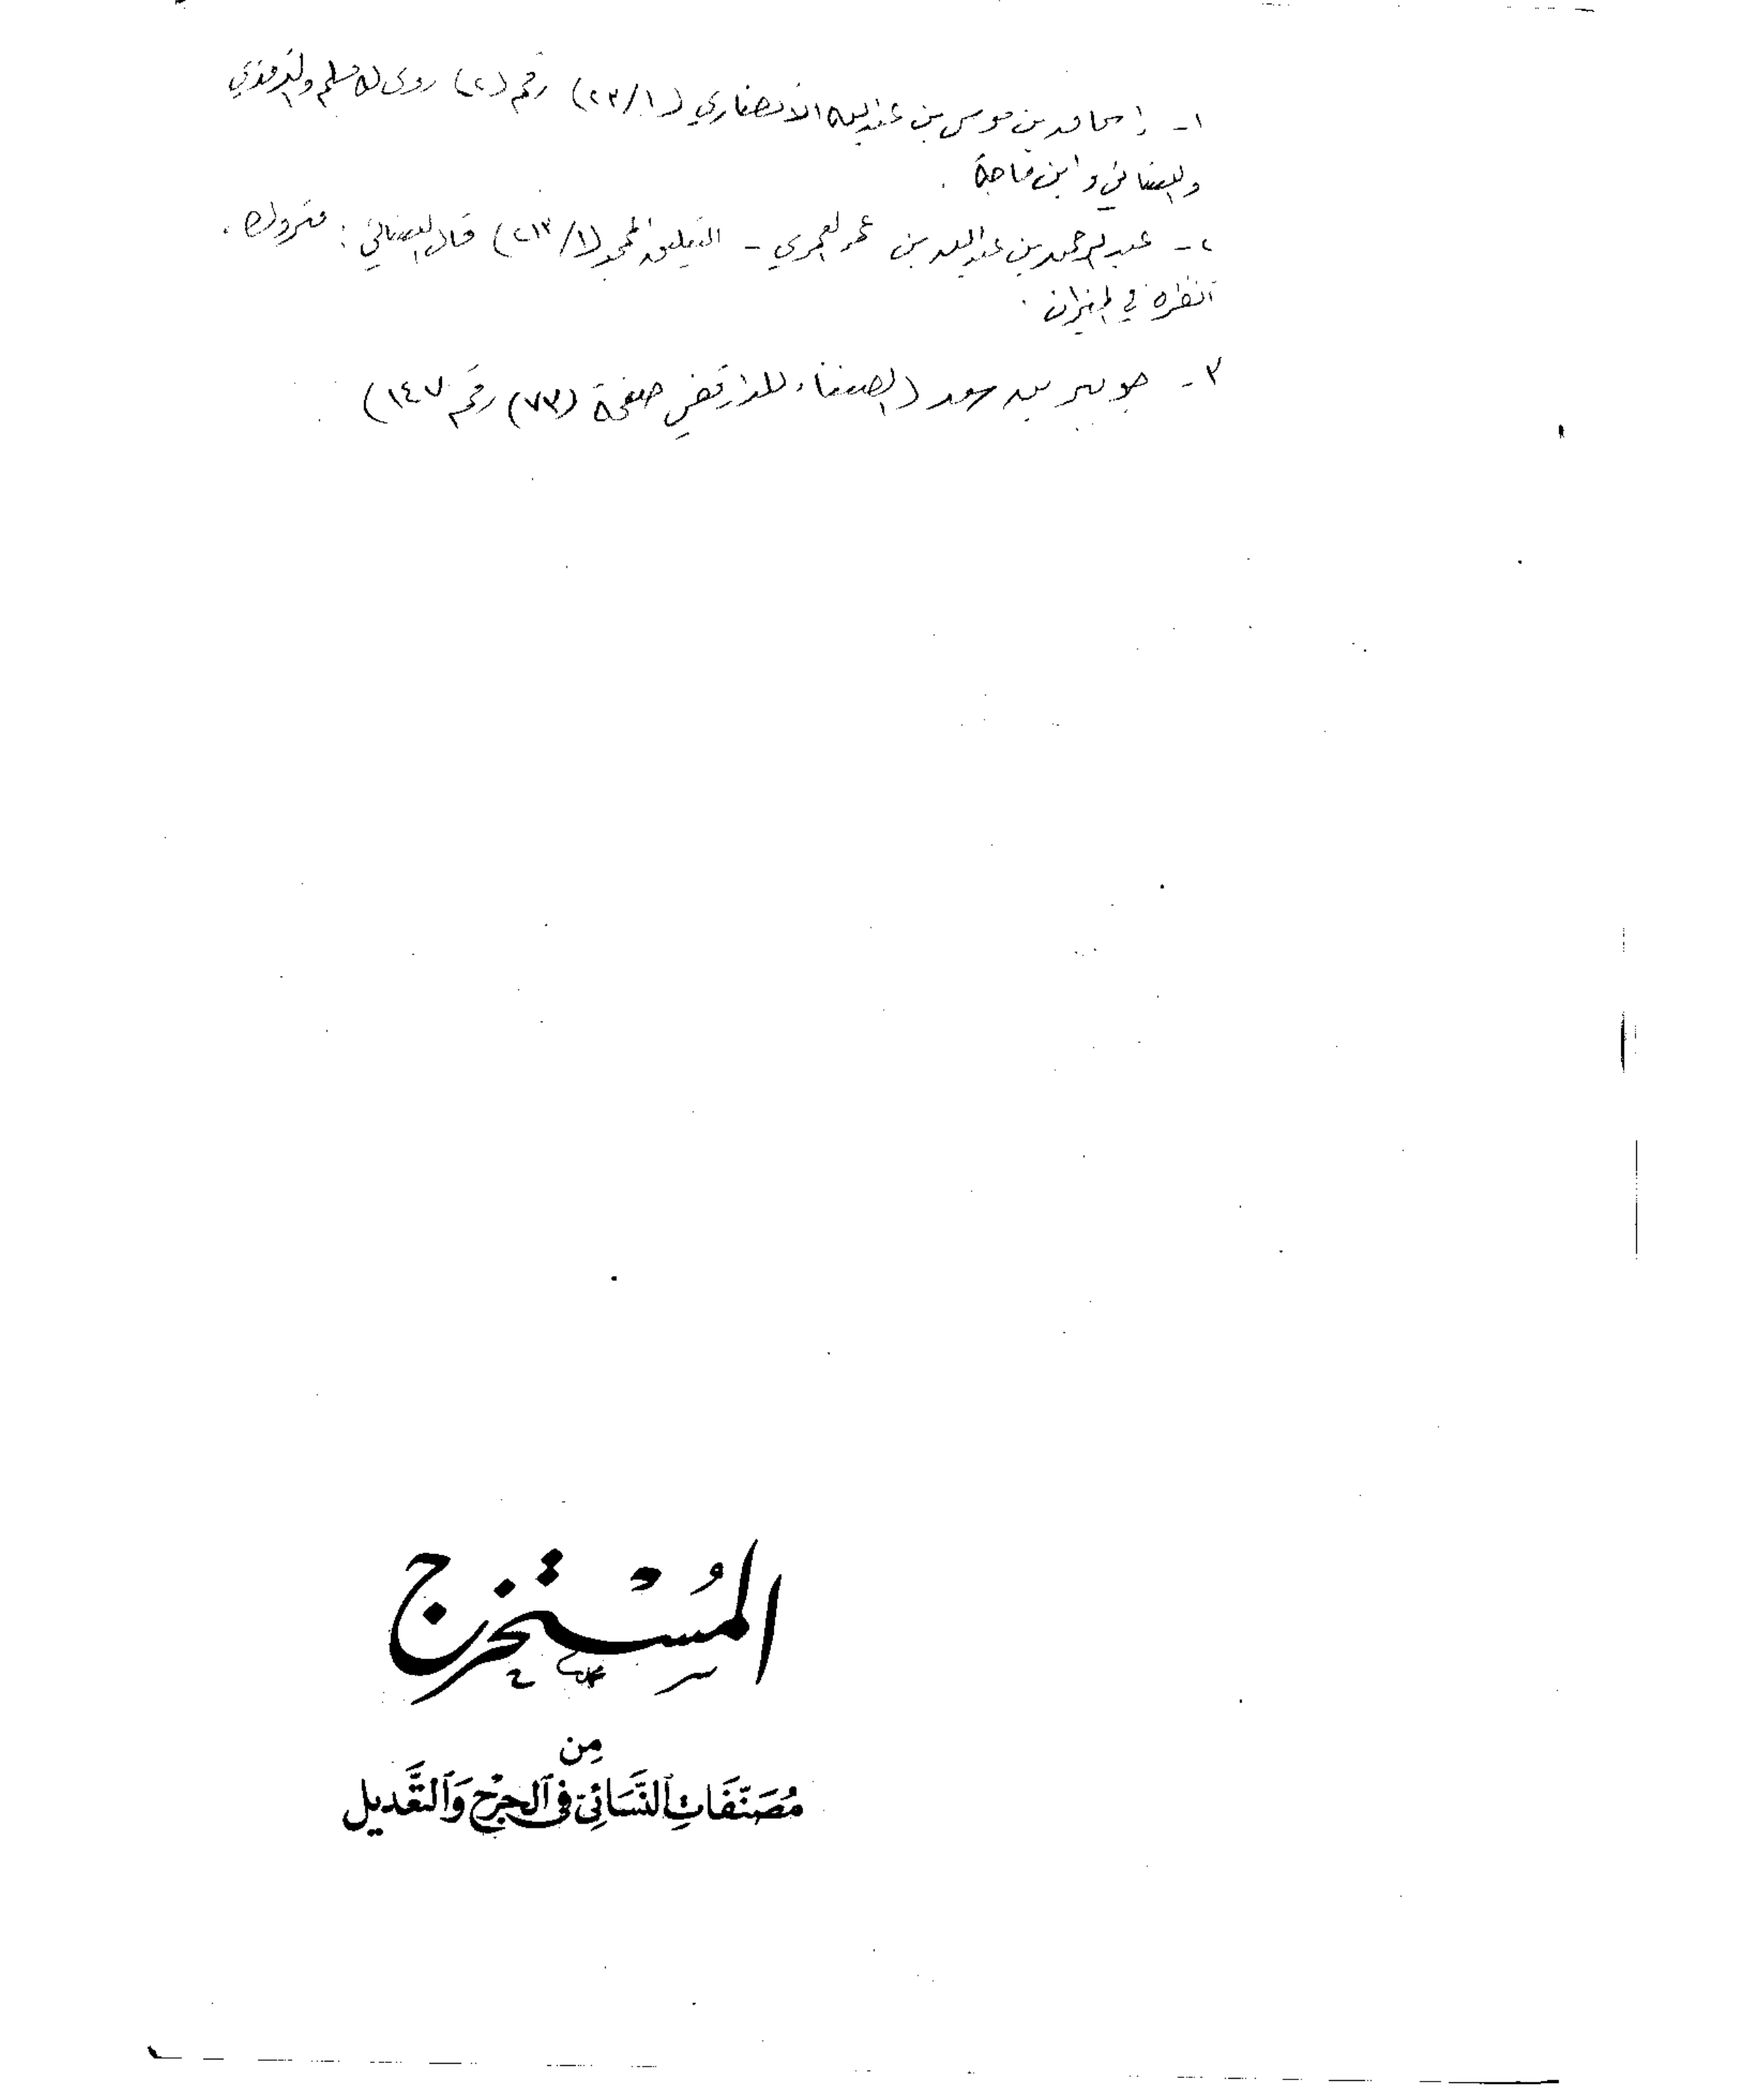 ١- إسحاق بن موسى بن عبد الله الأنصاري (٢٣/١) رقم (٢) روى له مسلم والترمذي
والنسائي وابن ماجة .
٢- عبد الرحمن بن عبد الله بن عمر العمري - التعليق الممجد (٢١٣/١) قال النسائي : متروك .
انظره في الميزان .
٣- جويبر بن سعيد (الضعفاء للدارقطني صفحة (٧٣) رقم ١٤٧)
المُسْتَخرج
مِن
مُصَنَّفَاتِ ٱلنَّسَائِي فِي ٱلجَرْحِ وَٱلتَّعْدِيل